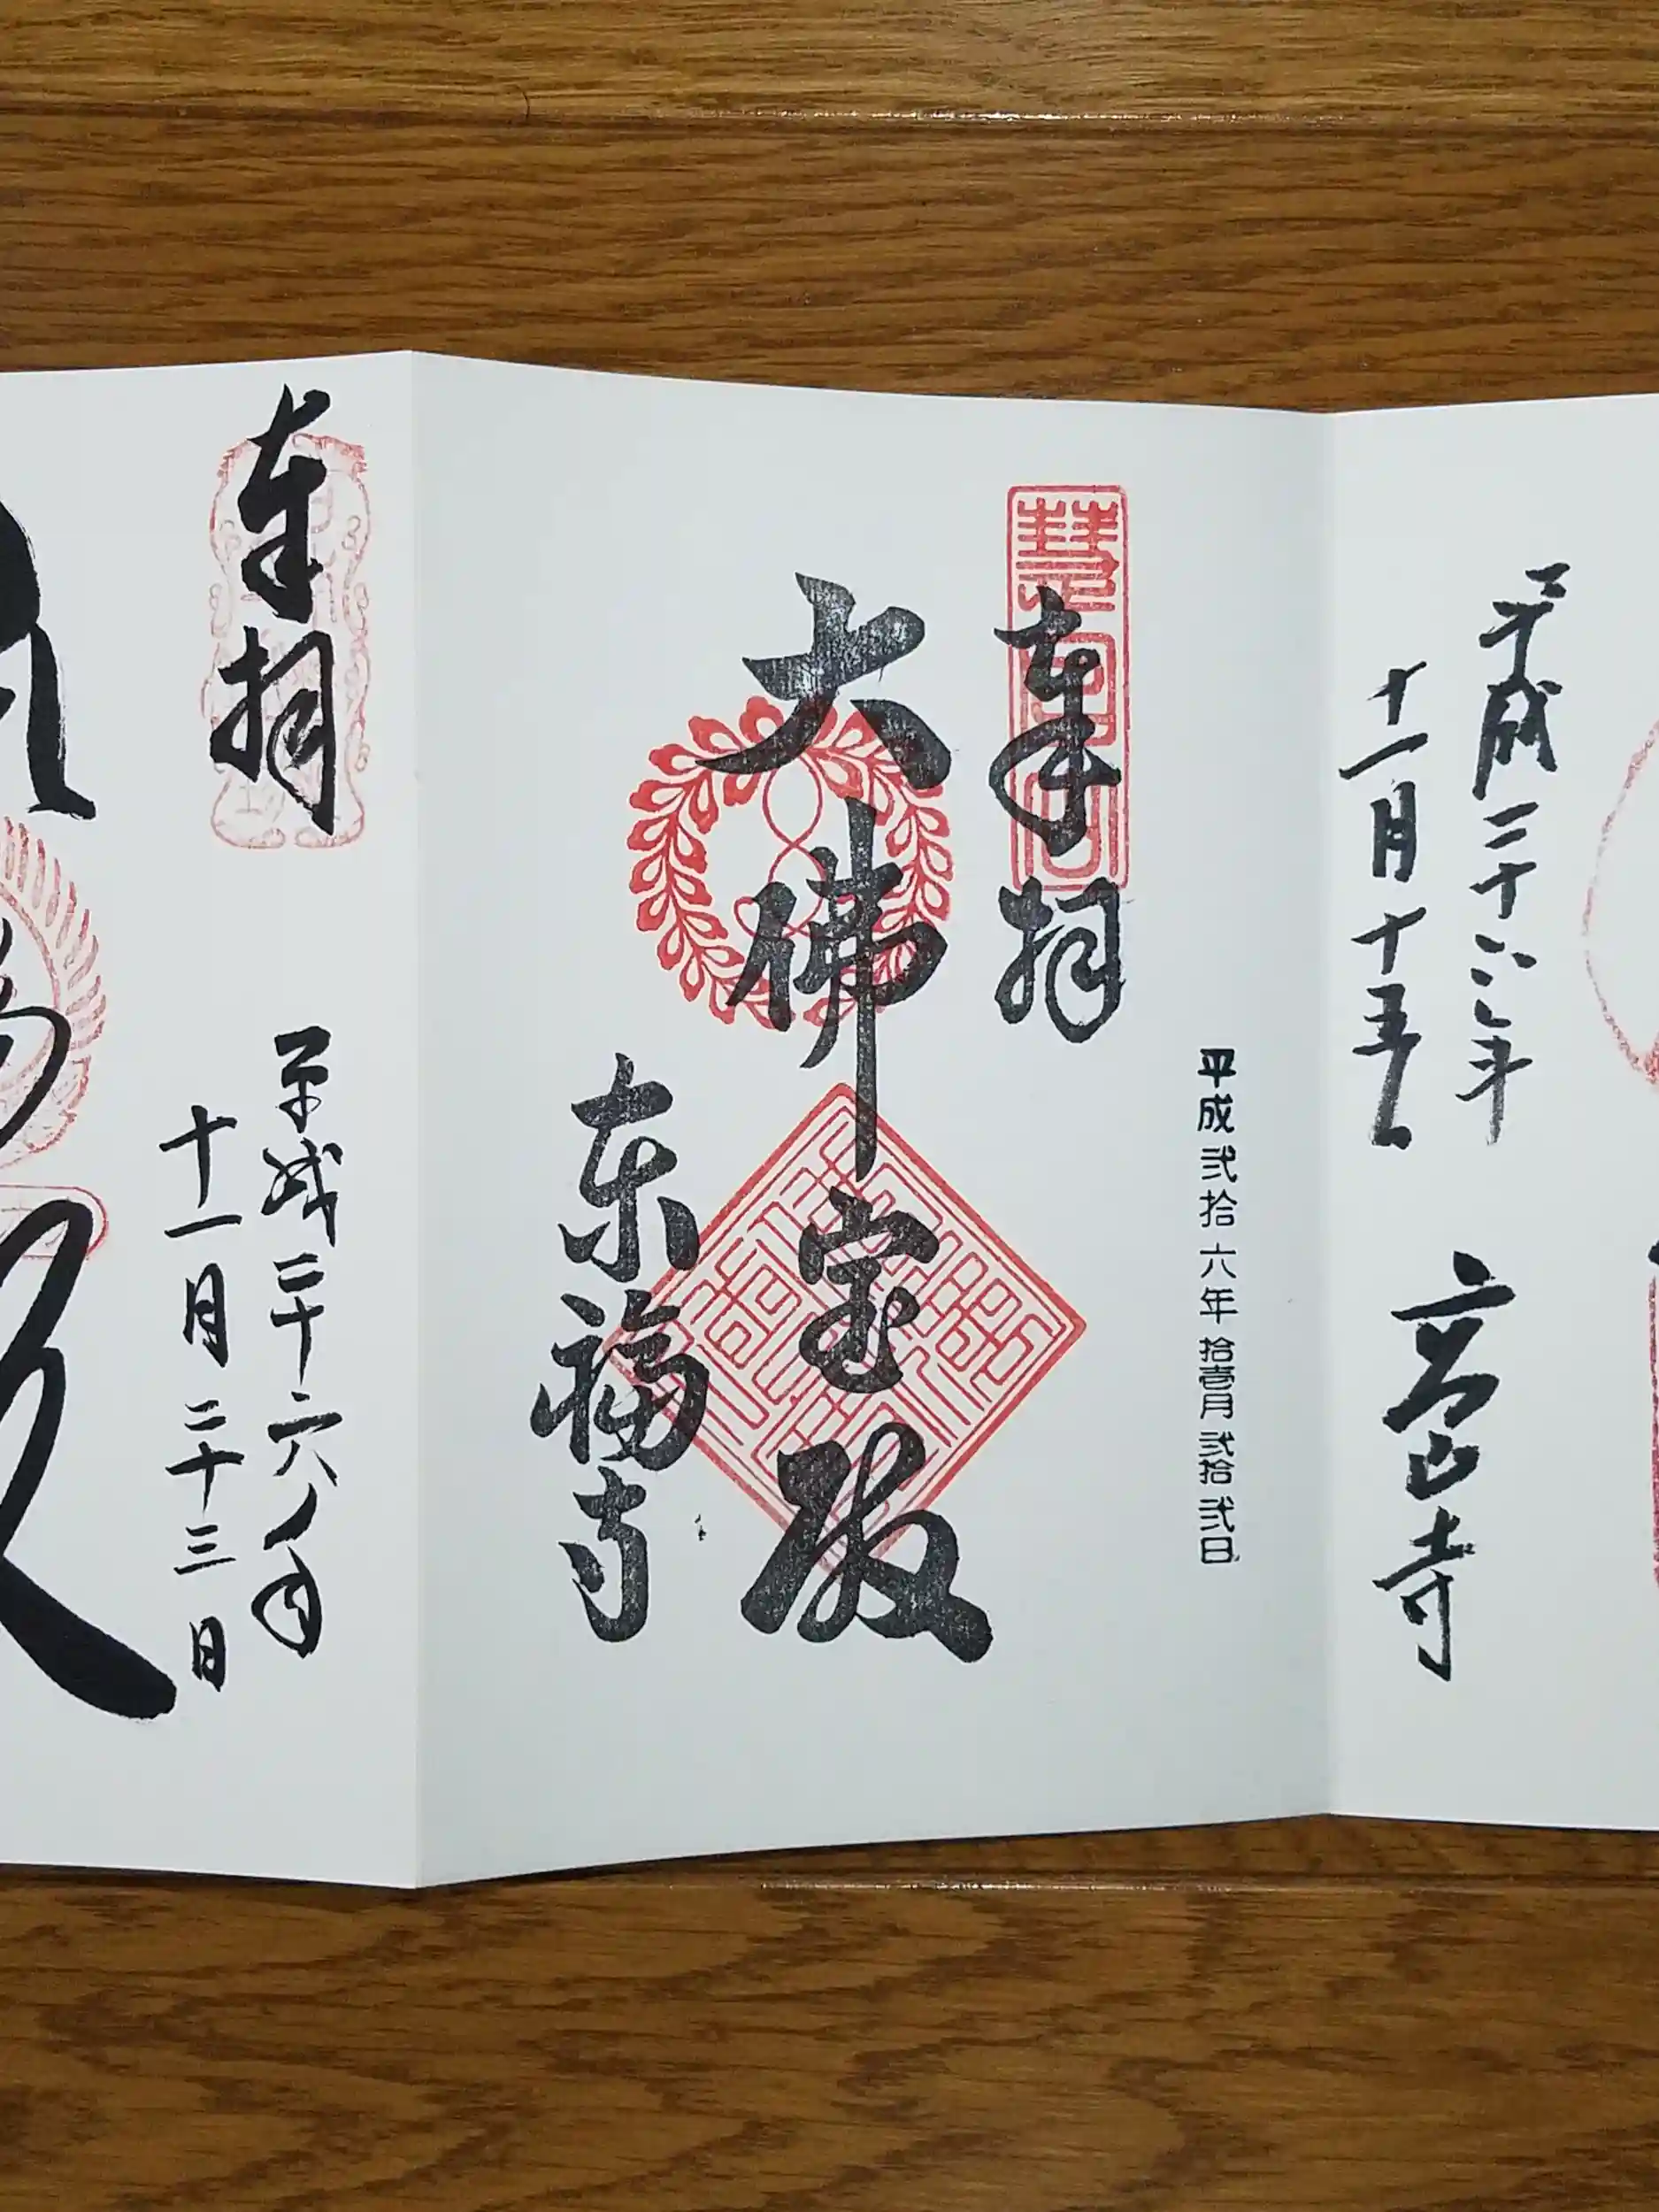 平成二十六年
十一月十五日
高山寺
平成弐拾六年拾壱月弐拾弐日
奉拝
大佛宝殿
東福寺
奉拝
平成二十六年
十一月二十三日